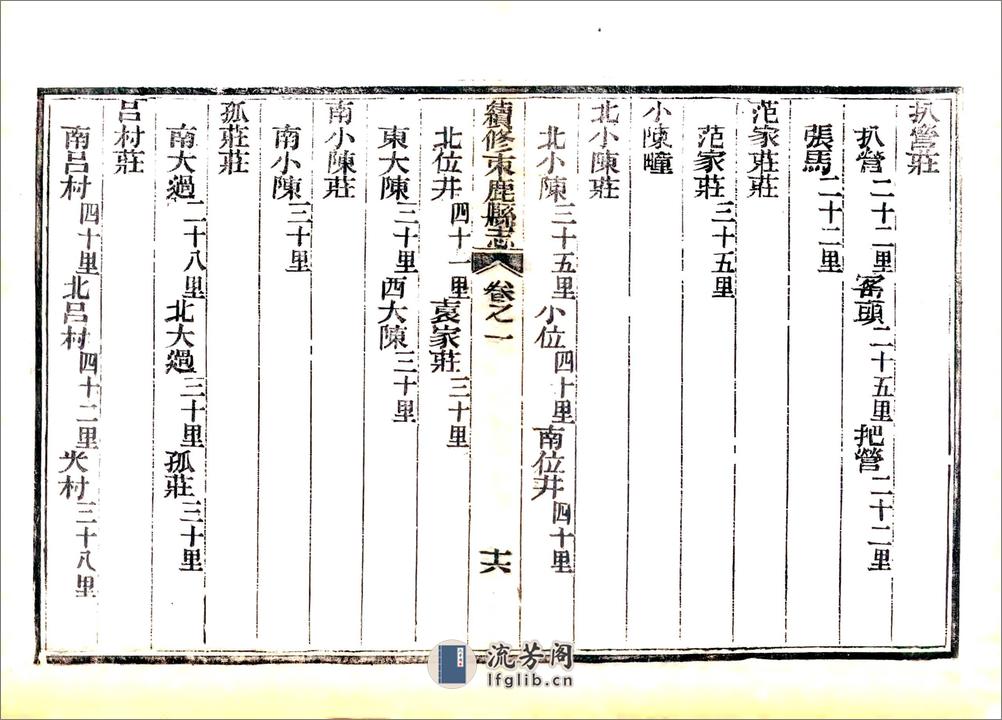 扒營莊
扒營二十二里窰頭二十五里把營二十二里
張馬二十二里
范家莊莊
范家莊三十五里
小陳疃
北小陳莊
北小陳三十五里小位四十里南位井四十里
續修束鹿縣志 卷之一 十六
北位井四十一里袁家莊三十里
東大陳三十里西大陳三十里
南小陳莊
南小陳三十里
孤莊莊
南大過二十八里北大過三十里孤莊三十里
呂村莊
南呂村四十里北呂村四十二里火村三十八里
流芳阁
lfglib.cn